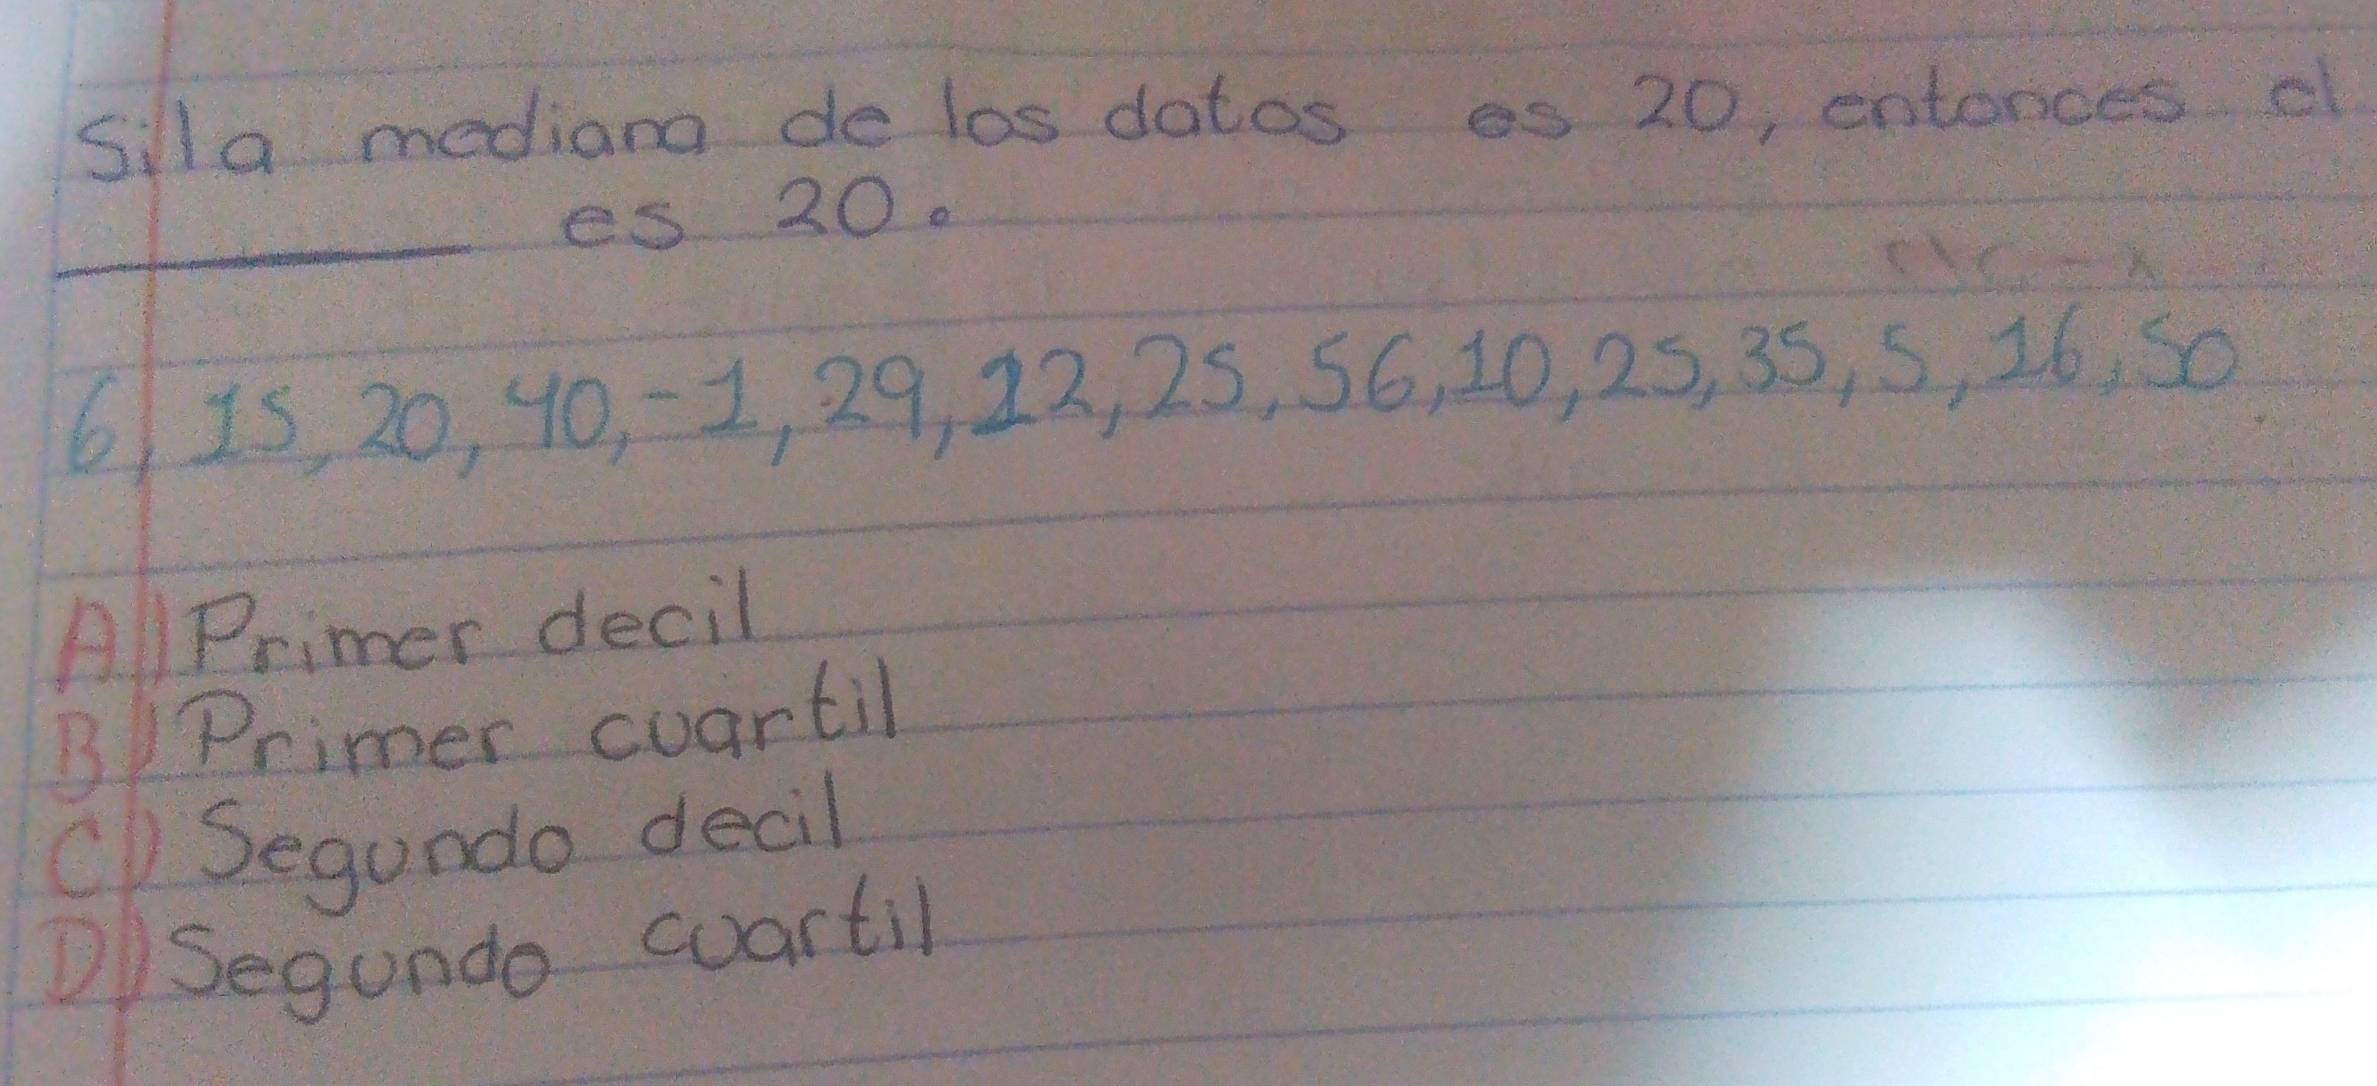 Si la mediana de los datos es 20, entonces el
__________ es 20.
6, 15, 20, 40, -1, 29, 12, 25, 56, 10, 25, 35, 5, 16, 50
A) Primer decil
B) Primer cuartil
C) Segundo decil
D) Segundo cuartil